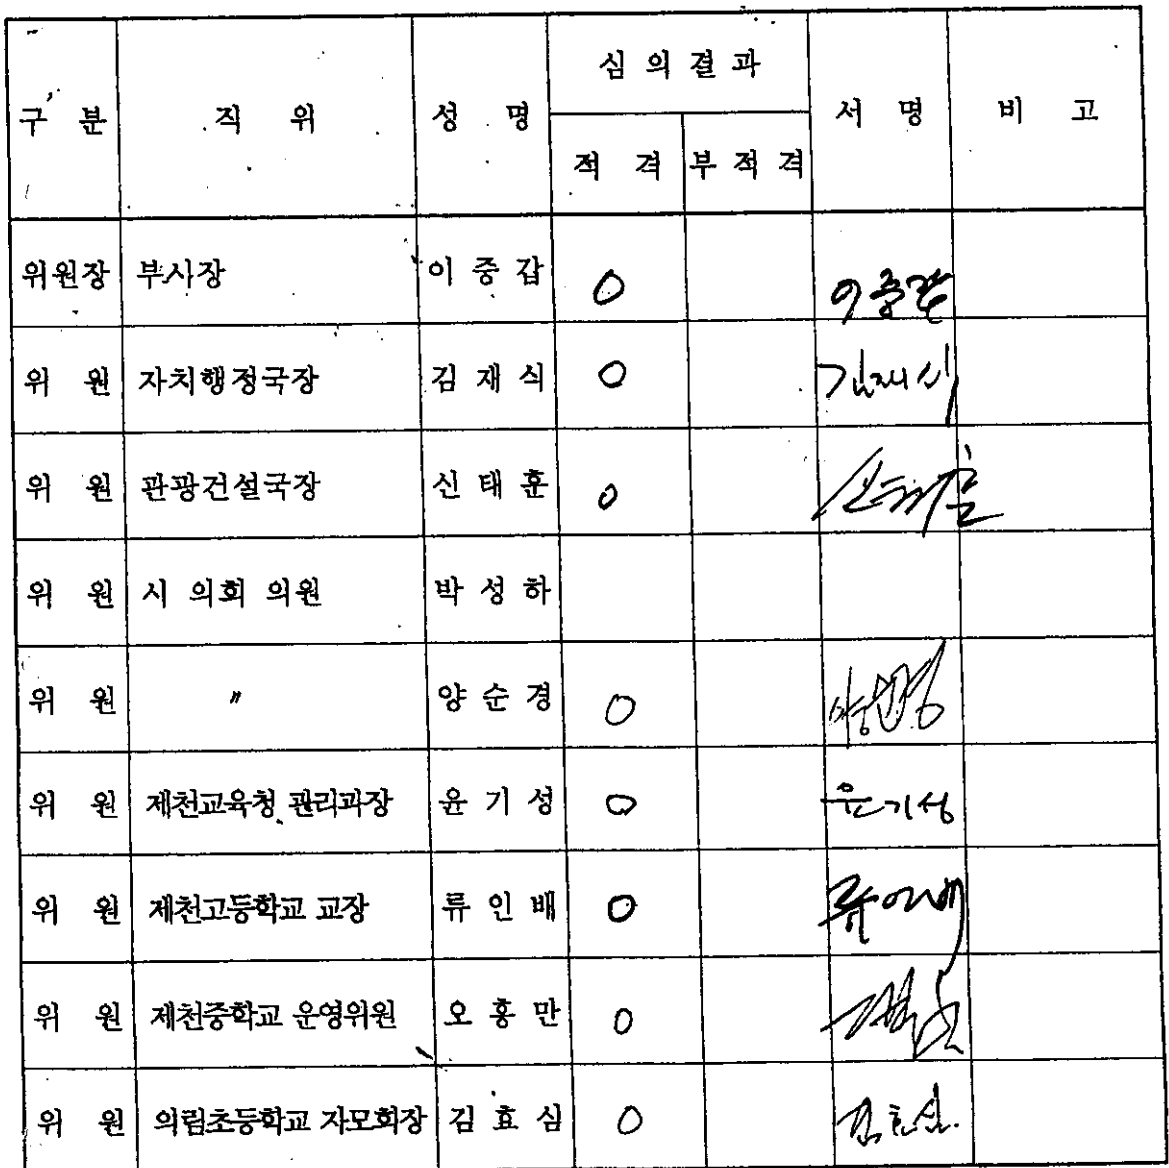 심 의 결 과
구 분 직 위 성 명 서 명 비 고
적 격 부 적 격
위원장 부사장 이 중 갑 O 이중갑
위 원 자치행정국장 김 재 식 O 김재식
위 원 관광건설국장 신 태 훈 O 신태훈
위 원 시 의회 의원 박 성 하
위 원 〃 양 순 경 O
위 원 제천교육청 관리과장 윤 기 성 O 윤기성
위 원 제천고등학교 교장 류 인 배 O 류인배
위 원 제천중학교 운영위원 오 홍 만 O
위 원 의림초등학교 자모회장 김 효 심 O 김효심